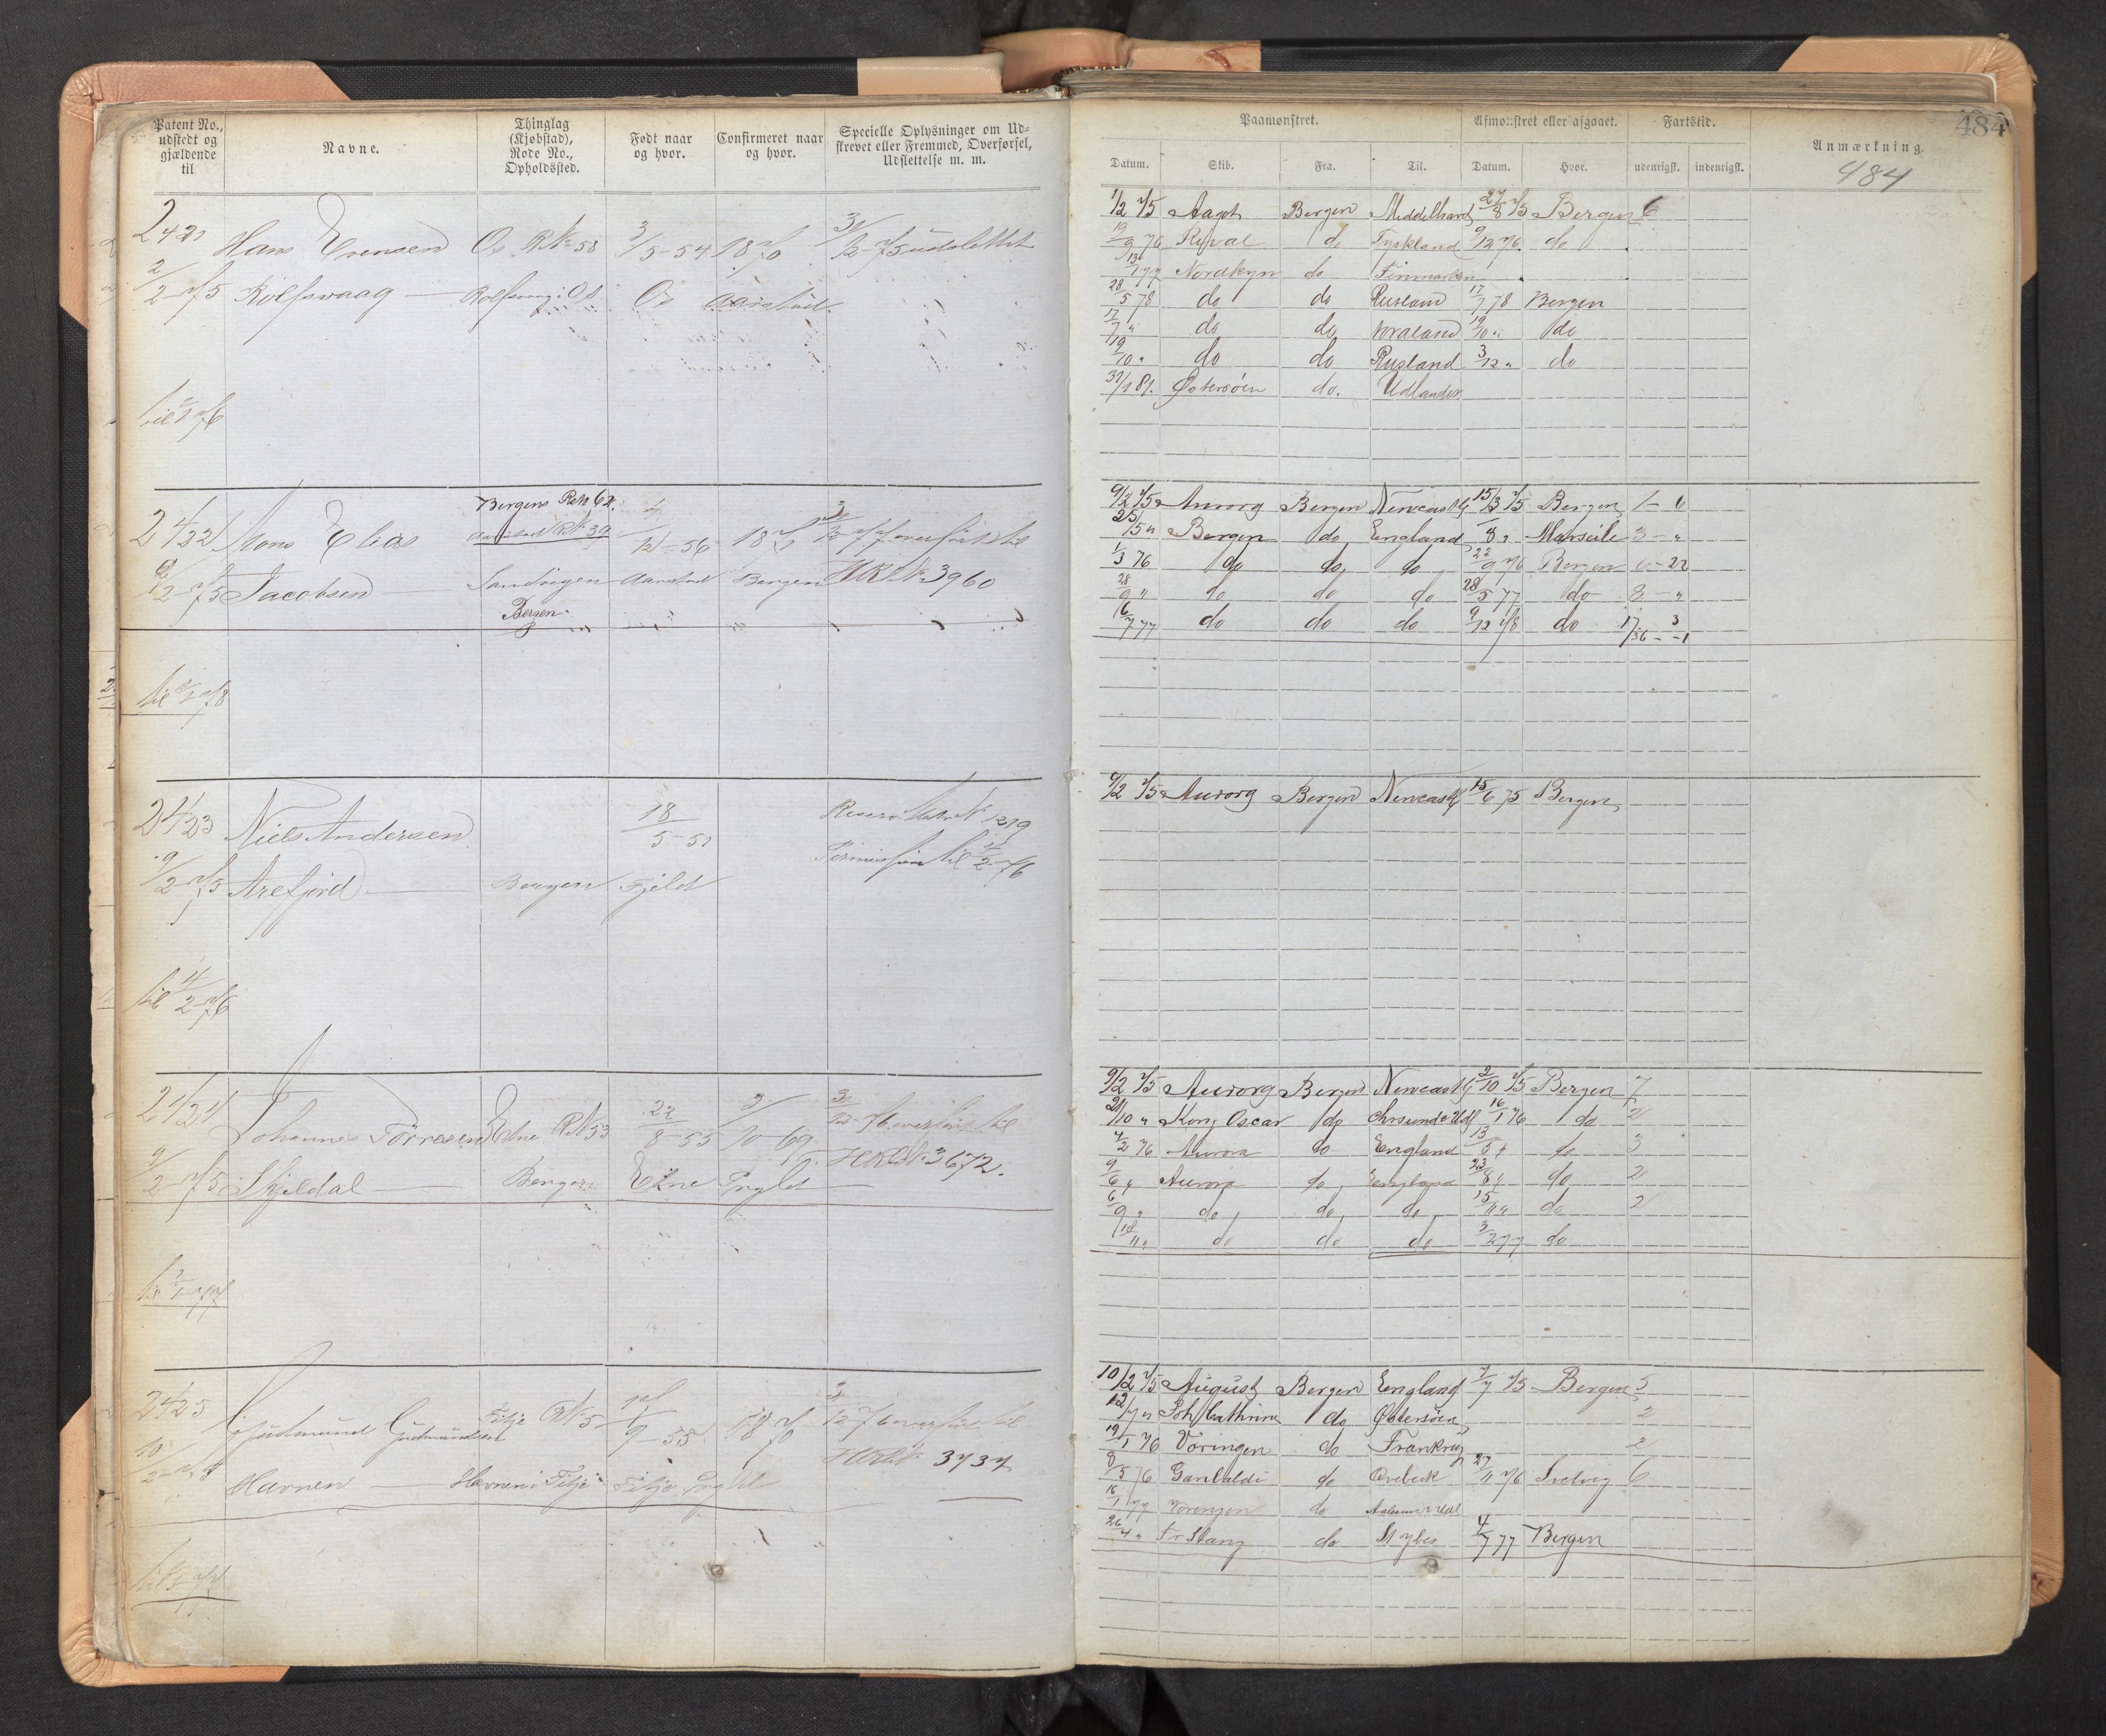 Patent No.,
udstedt og
gjældende
til
Navne.
Thinglag
(Kjøbstad),
Rode No.,
Opholdssted.
Født naar
og hvor.
Confirmeret naar
og hvor.
Specielle Oplysninger om Ud-
skrevet eller Fremmed, Overførsel,
Udslettelse m. m.
2421 Hans Evensen Os RNo 58 3/5-54 1870 31/12 75 udslettet
2/2-75 Rolfsvaag — Rolfsvaag i Os Os Aarstad
til 76
Bergens RNo 62.
2422 Mons Elias Aarstad RNo 39 4/12-56 overført til
9/2-75 Jacobsen — Sandvigen Aarstad Bergen HRNo 3960
Bergen.
til 78
2423 Niels Andersen 18/5-51 Reserve Matr. No 1219
9/2-75 Arefjord — Bergen Fjeld Permission til 11/2-76
til 11/2-76
2424 Johannes Torresen Etne RNo 53 22/8-55 2/10-69 3/12-76 overført til
9/2-75 Skjeldal — Bergen Etne HRNo 3672.
til
2425 Gudmund Gudmundsen Fitje RNo 5 9-55 1870 76 overført til
10/2-75 Havnen — Havnen i Fitje Fitje HRNo 3737
til
484
Paamønstret.
Afmønstret eller afgaaet.
Fartstid.
Anmærkning.
Datum.
Skib.
Fra.
Til.
Datum.
Hvor.
udenrigsk.
indenrigsk.
484
1/2 75 Aagot Bergen Middelhavet 27/8 75 Bergen 6
19/9 76 Reval do Tyskland 9/12 76. do
13/1 77 Nordkyn do Finmarken
28/5 78 do do Rusland 17/7 78 Bergen
17/7 " do do 19/10 " do
19/10 " do do Rusland 3/12 " do
31/1 81. Østersøen do. Udlandet
9/2 75 Aurora Bergen Newcastle 15/3 75 Bergen 1-6
25/5 " Bergen do England 8 " Marseile 3 - "
1/3 76 do do do 22/9 76 Bergen 6-22
28/9 " do do do 28/5 77 do 8 - "
16/7 77 do do do 9/12 78 do 17 3
36 - 1
9/2 75 Aurora Bergen Newcastle 15/6 75 Bergen
9/2 75 Aurora Bergen Newcastle 2/10 75 Bergen 7
21/10 " Kong Oscar do 16/1 76 do 2
4/2 76 Aurora do England 13/5 " do 3
9/6 " Aurora do England 23/8 " do 2
6/9 " do do do 15/11 " do 2
18/11 " do do do 3/2 77 do
10/2 75 August Bergen England 7/7 75 Bergen 5
12/7 " Joh Cathrine do Østersøen 2
19/1 76 Vøringen do Frankrig 2
8/5 76 Garibaldi do 27/11 76 Svelvig 6
16/1 77 Vøringen do
26/4 " Fr Stang do 4/7 77 Bergen